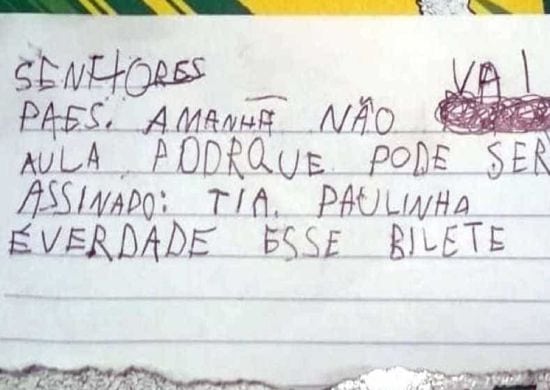 SENHORES VAI
PAES. AMANHÃ NÃO
AULA PODRQUE PODE SER
ASSINADO: TIA. PAULINHA
É VERDADE ESSE BILETE